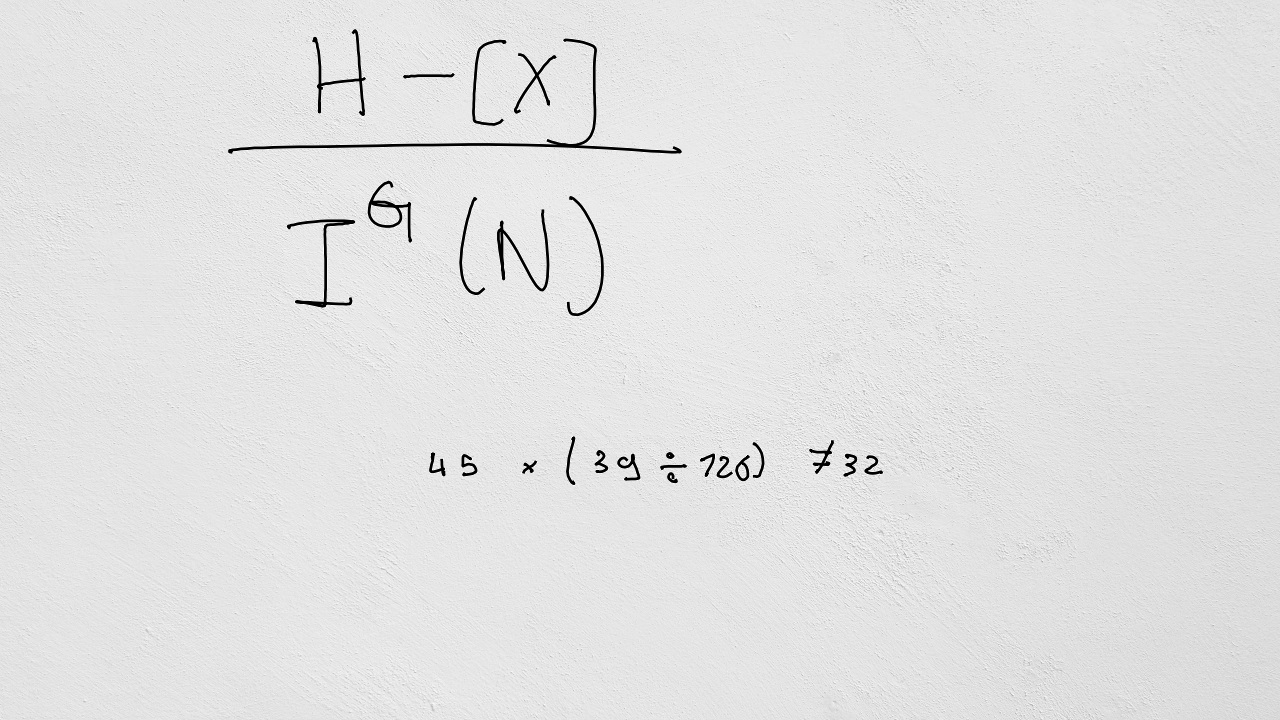 H - [X]
I^G (N)
45 × (39 ÷ 126) ≠ 32